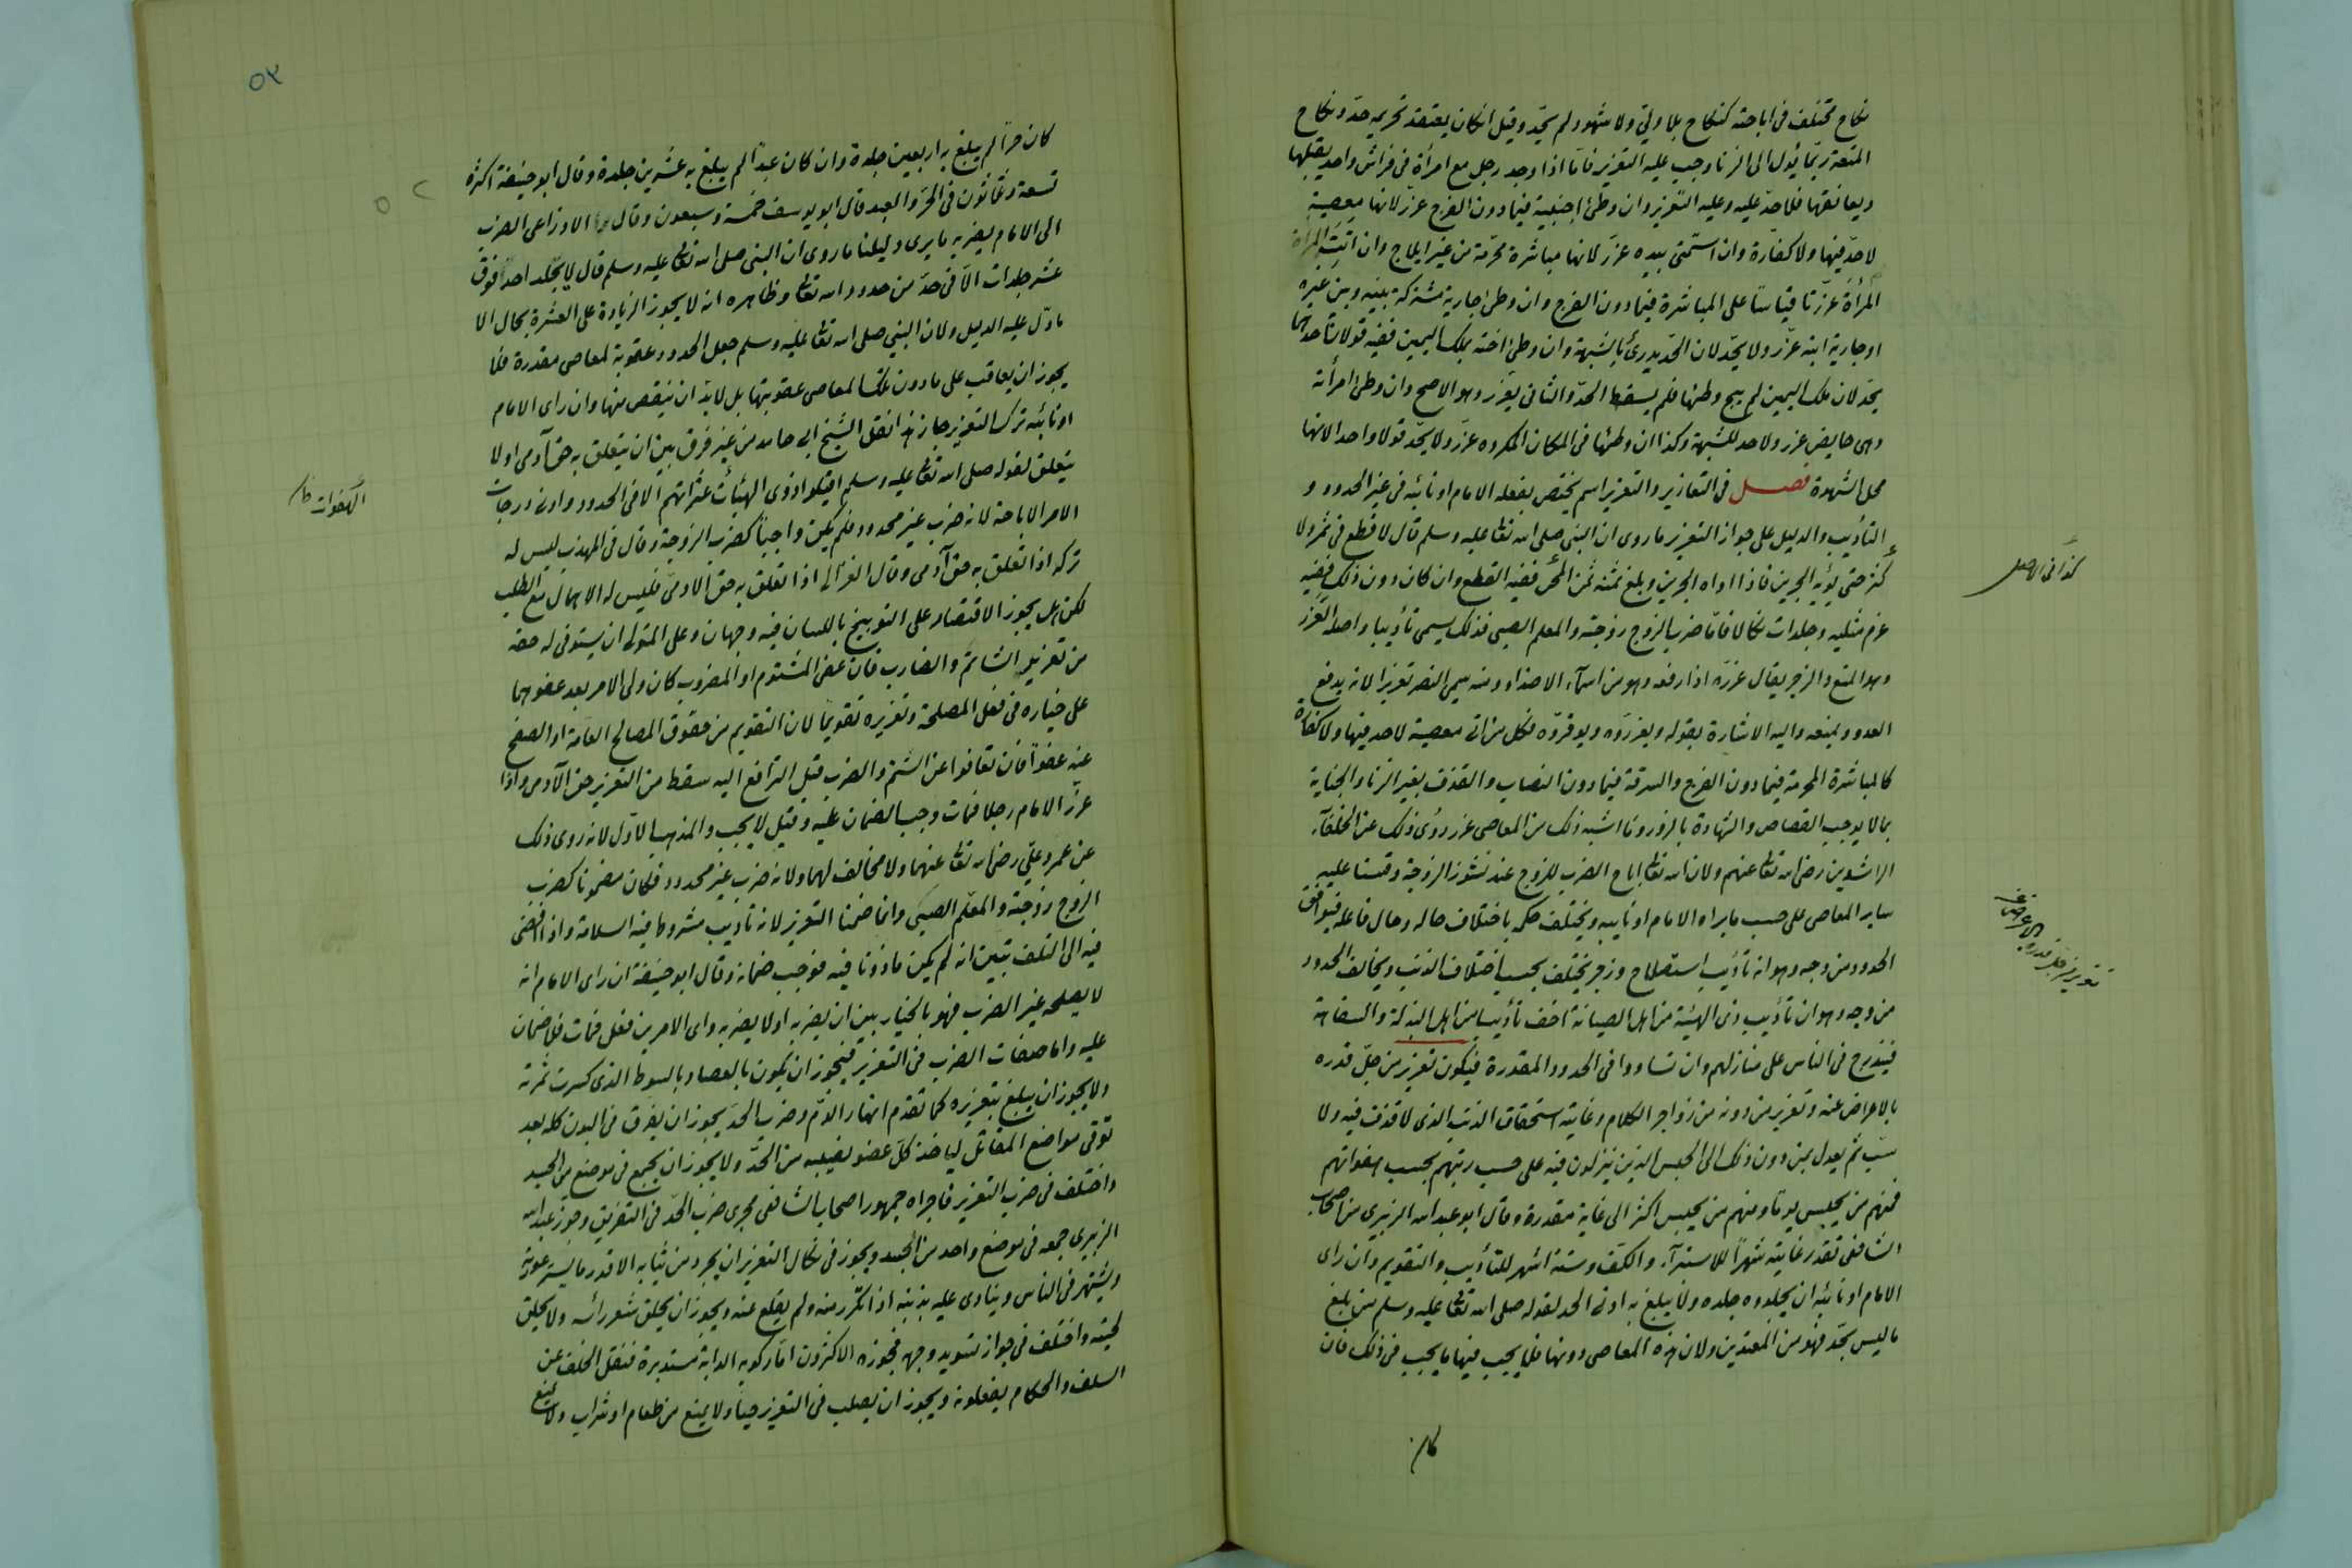 نكاح مختلف فى اباحته كنكاح بلا ولي ولا شهود لم يحد وقيل ان كان يعتقد تحريمه حد ونكاح
المتعة ربما يئول الى الزنا وجب عليه التعزير فاما اذا وجد رجل مع امرأة فى فراش واحد يقبلها
ويعانقها فلا حد عليه وعليه التعزير وان وطئ اجنبية فيما دون الفرج عزر لانها معصية
لا حد فيها ولا كفارة وان استمنى بيده عزر لانها مباشرة محرمة من غير ايلاج وان اتت المرأة
المرأة عزرتا قياسا على المباشرة فيما دون الفرج وان وطئ جارية مشتركة بينه وبين غيره
او جارية ابنه عزر ولا يحد لان الحد يدرئ بالشبهة وان وطئ اخته بملك اليمين ففيه قولان احدهما
يحد لان ملك اليمين لم يبح وطئها فلم يسقط الحد والثانى يعزر وهو الاصح وان وطئ امرأته
وهى حايض عزر ولا حد للشبهة وكذا ان وطئها فى المكان المكروه عزر ولا يحد قولا واحدا لانها
محل الشهوة فصل فى التعازير والتعزير اسم يختص بفعله الامام او نائبه فى غير الحدود و
التأديب والدليل على جواز التعزير ما روى ان النبى صلى الله تعالى عليه وسلم قال لا قطع فى ثمر ولا
كثر حتى يؤيه الجرين فاذا اواه الجرين وبلغ ثمنه ثمن المجن ففيه القطع وان كان دون ذلك ففيه
غرم مثليه وجلدات نكالا فاما ضرب الزوج زوجته والمعلم الصبى فذلك يسمى تأديبا واصله العزر
وهو المنع والزجر يقال عزره اذا رفعه وهو من اسماء الاضداد ومنه سمى النصر تعزيرا لانه يدفع
العدو ويمنعه واليه الاشارة بقوله ويعزروه ويوقروه فكل من اتى معصية لا حد فيها ولا كفارة
كالمباشرة المحرمة فيما دون الفرج والسرقة فيما دون النصاب والقذف بغير الزنا والجناية
بما لا يوجب القصاص والشهادة بالزور وما اشبه ذلك من المعاصى عزر روى ذلك عن الخلفاء
الراشدين رضى الله تعالى عنهم ولان الله تعالى اباح الضرب للزوج عند نشوز الزوجة وقسنا عليه
ساير المعاصى على حسب ما يراه الامام او نايبه ويختلف حكمه باختلاف حاله وحال فاعله فيوافق
الحدود من وجه وهو انه تأديب استصلاح وزجر يختلف بحسب اختلاف الذنب ويخالف الحدود
من وجه وهو ان تأديب ذى الهيئة من اهل الصيانة اخف تأديبا من اهل البذلة والسفاهة
فيتدرج فى الناس على منازلهم وان تساووا فى الحدود المقدرة فيكون تعزير من جل قدره
بالاعراض عنه وتعزير من دونه من زواجر الكلام وغايته استحقاق الذنب الذى لا قذف فيه ولا
سب ثم يعدل بمن دون ذلك الى الحبس الذين ينزلون فيه على حسب رتبهم بحسب هفواتهم
فمنهم من يحبس يوما ومنهم من يحبس اكثر الى غاية مقدرة وقال ابو عبد الله الزبيرى من اصحاب
الشافعى تقدر غايته شهرا للاستبراء والكشف وستة اشهر للتأديب والتقويم وان راى
الامام او نائبه ان يجلدوه جلده ولا يبلغ به ادنى الحد لقوله صلى الله تعالى عليه وسلم من بلغ
ما ليس بحد فهو من المعتدين ولان هذه المعاصى دونها فلا يجب فيها ما يجب فى ذلك فان
كان
كذا فى الاصل
تعزير من جل قدره بالاعراض عنه
٥٢
٥٢
كان حرا لم يبلغ به اربعين جلدة وان كان عبدا لم يبلغ به عشرين جلدة وقال ابو حنيفة اكثره
تسعة وثمانون فى الحر والعبد قال ابو يوسف خمسة وسبعون وقال الاوزاعى الضرب
الى الامام يضربه ما يرى دليلنا ما روى ان النبى صلى الله تعالى عليه وسلم قال لا يجلد احد فوق
عشر جلدات الا فى حد من حدود الله تعالى وظاهره انه لا يجوز الزيادة على العشرة بحال الا
ما دل عليه الدليل ولان النبى صلى الله تعالى عليه وسلم جعل الحدود عقوبة لمعاصى مقدرة فلا
يجوز ان يعاقب على ما دون تلك المعاصى عقوبتها بل لابد ان ينقص منها وان راى الامام
او نائبه ترك التعزير جاز هذا نقل الشيخ ابى حامد من غير فرق بين ان يتعلق به حق آدمى او لا
يتعلق لقوله صلى الله تعالى عليه وسلم اقيلوا ذوى الهيئات عثراتهم الا فى الحدود وادنى درجات
الامر الاباحة لانه ضرب غير محدود فلم يكن واجبا كضرب الزوجة وقال فى المهذب ليس له
تركه اذا تعلق به حق آدمى وقال الغزالى اذا تعلق به حق الادمى فليس له الاهمال مع الطلب
لكن هل يجوز الاقتصار على التوبيخ باللسان فيه وجهان وعلى المتولى ان يستوفى له حقه
من تعزير الشاتم والضارب فان عفى المشتوم او المضروب كان ولى الامر بعد عفوهما
على خياره فى فعل المصلحة وتعزيره تقويما لان التقويم من حقوق المصالح العامة او الصفح
عنه عفوا فان تعافوا عن الشتم والضرب قبل الترافع اليه سقط من التعزير حق الآدمى واذا
عزر الامام رجلا فمات وجب الضمان عليه وقيل لا يجب والمذهب الاول لانه روى ذلك
عن عمر وعلى رضى الله تعالى عنهما ولا مخالف لهما ولانه ضرب غير محدود فكان مضمونا كضرب
الزوج زوجته والمعلم الصبى وانما ضمنا التعزير لانه تأديب مشروط فيه السلامة واذا افضى
فيه الى التلف تبين انه لم يكن ماذونا فيه فوجب ضمانه وقال ابو حنيفة ان راى الامام انه
لا يصلحه غير الضرب فهو بالخيار بين ان يضربه او لا يضربه واى الامرين فعل فمات فلا ضمان
عليه واما صفات الضرب فى التعزير فيجوز ان يكون بالعصا وبالسوط الذى كسرت ثمرته
ولا يجوز ان يبلغ بتعزيره كما تقدم انهار الدم وضرب الحد يجوز ان يفرق فى البدن كله بعد
توقى مواضع المقاتل لياخذ كل عضو نصيبه من الحد ولا يجوز ان يجمع فى موضع من الجسد
واختلف فى ضرب التعزير فاجراه جمهور اصحاب الشافعى مجرى ضرب الحد فى التفريق وجوز عبد الله
الزبيرى جمعه فى موضع واحد من الجسد ويجوز فى نكال التعزير ان يجرد من ثيابه الا قدر ما يستر عورته
ويشتهر فى الناس وينادى عليه بذنبه اذا تكرر منه ولم يقلع عنه ويجوز ان يحلق شعر رأسه ولا يحلق
لحيته واختلف فى جواز تسويد وجهه فجوزه الاكثرون اما ركوبه الدابة مستدبرة فنقل الخلف عن
السلف والحكام يفعلونه ويجوز ان يصلب فى التعزير حيا ولا يمنع من طعام او شراب ولا يمنع